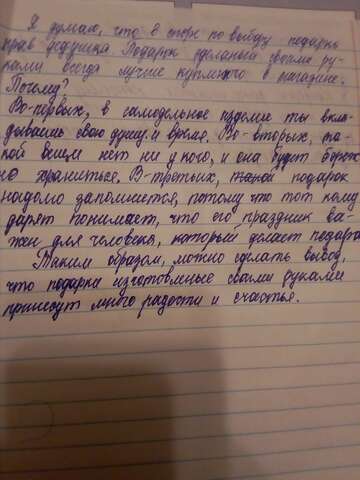 Я думаю, что в споре по выбору подарка
прав дедушка. Подарок сделаный своими ру-
ками всегда лучше купленого в магазине.
Почему?
Во-первых, в самодельное изделие ты вкла-
дываешь свою душу и время. Во-вторых, та-
кой вещи нет ни у кого, и она будет береж
но храниться. В-третьих, такой подарок
надолго запомнется, потому что тот кому
дарят понимает, что его праздник ва-
жен для человека, который делает подарок
Таким образом, можно сделать вывод,
что подарки изготовленые своими руками
принесут много радости и счастья.